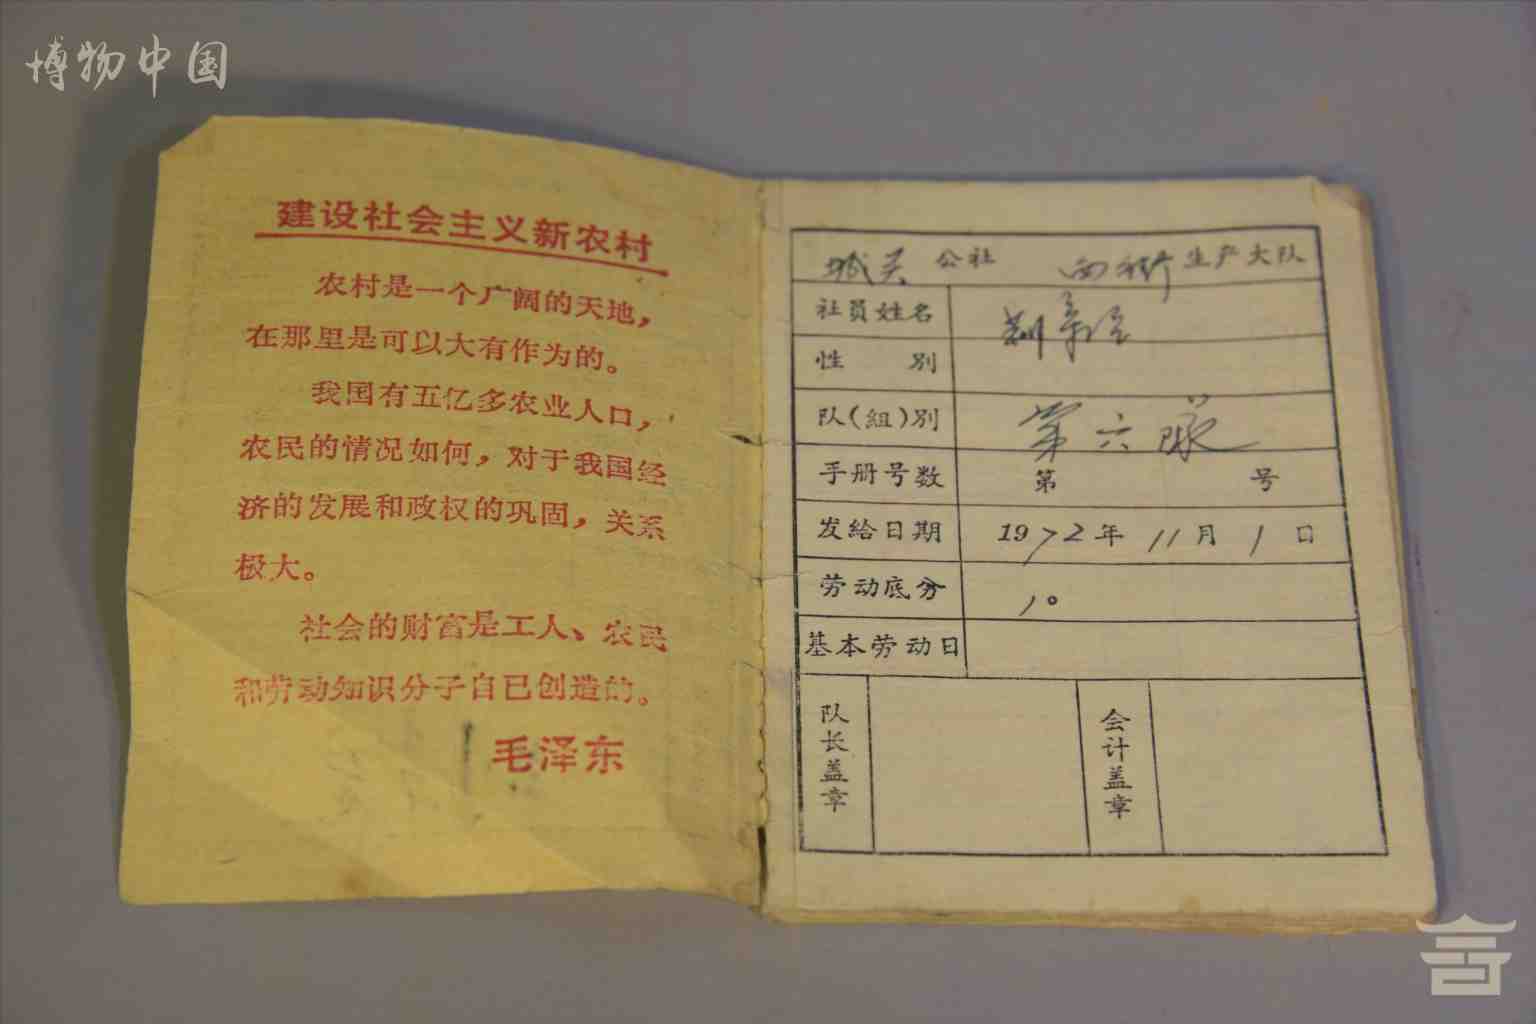 博物中国
建设社会主义新农村
农村是一个广阔的天地，
在那里是可以大有作为的。
我国有五亿多农业人口，
农民的情况如何，对于我国经
济的发展和政权的巩固，关系
极大。
社会的财富是工人、农民
和劳动知识分子自已创造的。
毛泽东
城关公社 西街生产大队
社员姓名
性别
队(組)别 第六队
手册号数 第 号
发给日期 1972年11月1日
劳动底分 10
基本劳动日
队长盖章
会计盖章